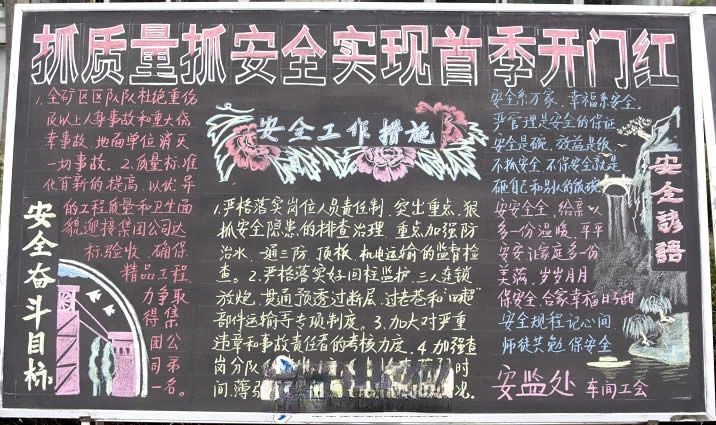 抓质量抓安全实现首季开门红
1.全矿区区队队杜绝重伤
及以上人身事故和重大侥
幸事故.地面单位消灭
一切事故.2.质量标准
化有新的提高.以优异
的工程质量和卫生面
貌迎接集团公司达
标验收.确保
精品工程.
力争取
得集
团公
司第
一名。
安全奋斗目标
安全工作措施
1.严格落实岗位人员责任制.突出重点.狠
抓安全隐患的排查治理.重点加强防
治水.一通三防.顶板.机电运输的监督检
查。2.严格落实好回柱监护.三人连锁
放炮.贯通预透过断层.过老巷和"四超"
部件运输等专项制度。3.加大对严重
违章和事故责任者的考核力度。4.加强岩
岗分队
时
间.薄
安全系万家.幸福系安全.
严管理是安全的保证
安全是碗.效益是饭
不抓安全.不保安全就是
砸自己和别人的饭碗
安安全全.给亲人
多一份温暖.平平
安安让家庭多一份
美满.岁岁月月
保安全.合家幸福日子甜
安全规程记心间
师徒共勉保安全
安全谚语
安监处 车间工会